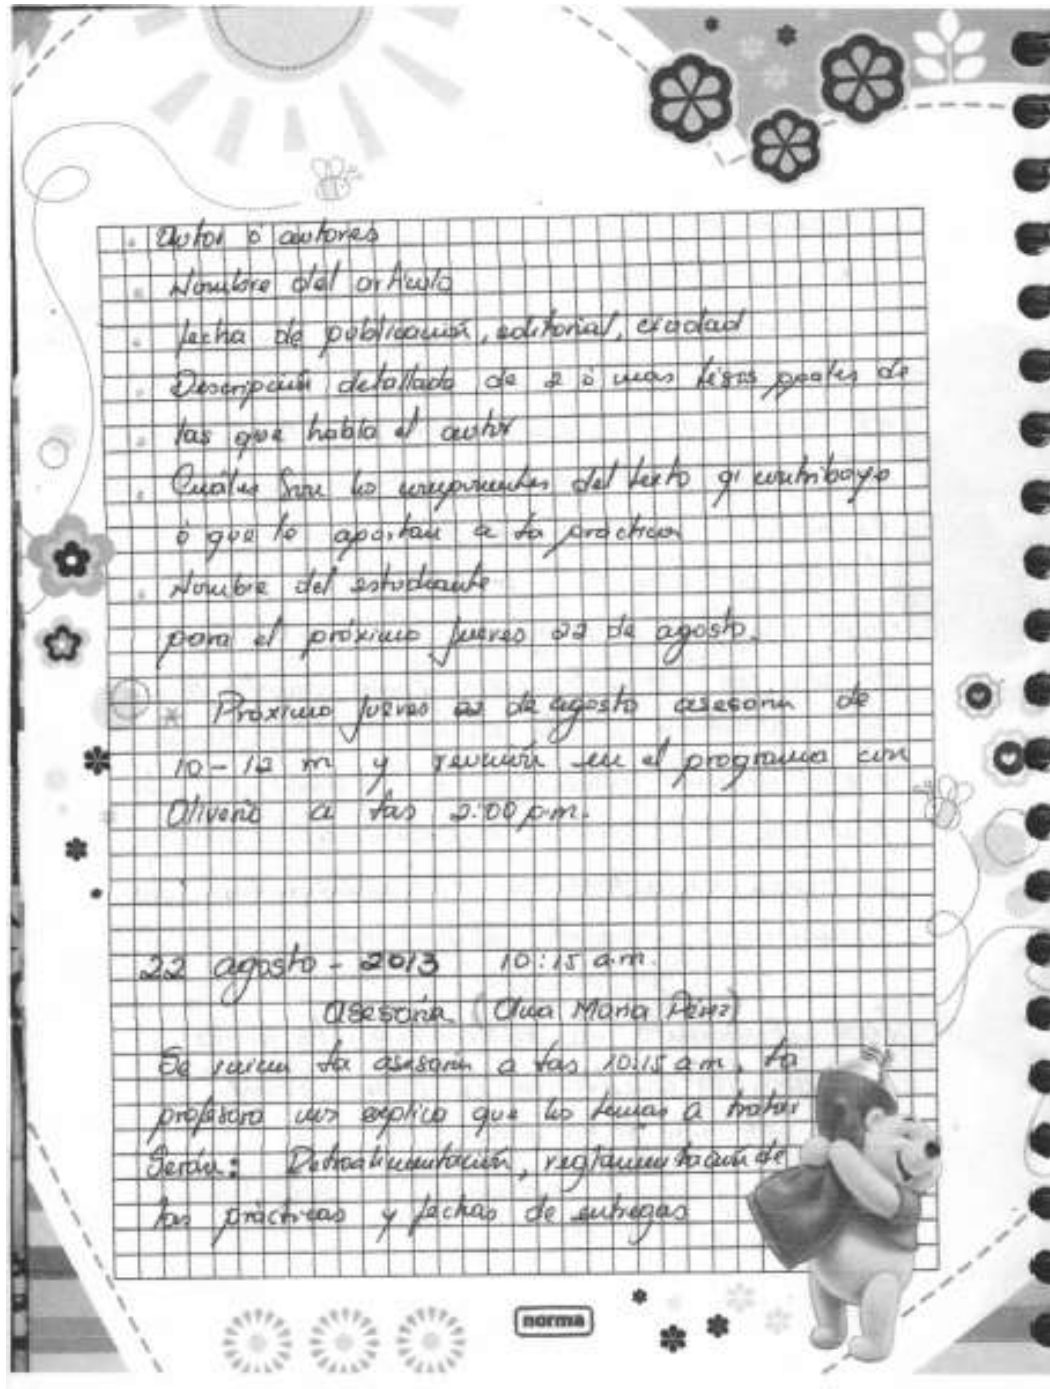 Autor ó autores
Nombre del artículo
fecha de publicación, editorial, ciudad
Descripción detallada de 2 ó mas tésis gpales de
las que habla el autor
Cuáles Son los componentes del texto q' contribuye
ó que le aportan a la práctica
Nombre del estudiante
para el próximo jueves 22 de agosto.
Próximo jueves 22 de agosto asesoria de
10-12 m y reunión en el programa con
Oliverio a las 2:00 p.m.
22 agosto - 2013 10:15 a.m.
Asesoria (Maria Pérez)
Se inicia la asesoria a las 10:15 a.m, la
profesora nos explico que los temas a tratar
Serán: Retroalimentación, reglamentación de
las prácticas y fechas de entregas
norma